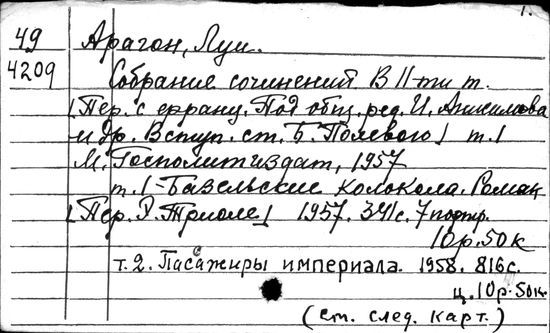 1.
49 Арагон, Луи.
4209 Собрание сочинений В 11-ти т.
[Пер. с франц. Под общ. ред. И. Анисимова
и др. Вступ. ст. Б. Полевого] т. 1
М. Госполитиздат, 1957
т. 1 - Базельские колокола. Роман
[Пер. Э. Триоле] 1957. 341 с. 7 портр.
10 р. 50 к
т. 2. Пассажиры империала. 1958. 816 с.
ц. 10 р. 50 к.
(см. след. карт.)